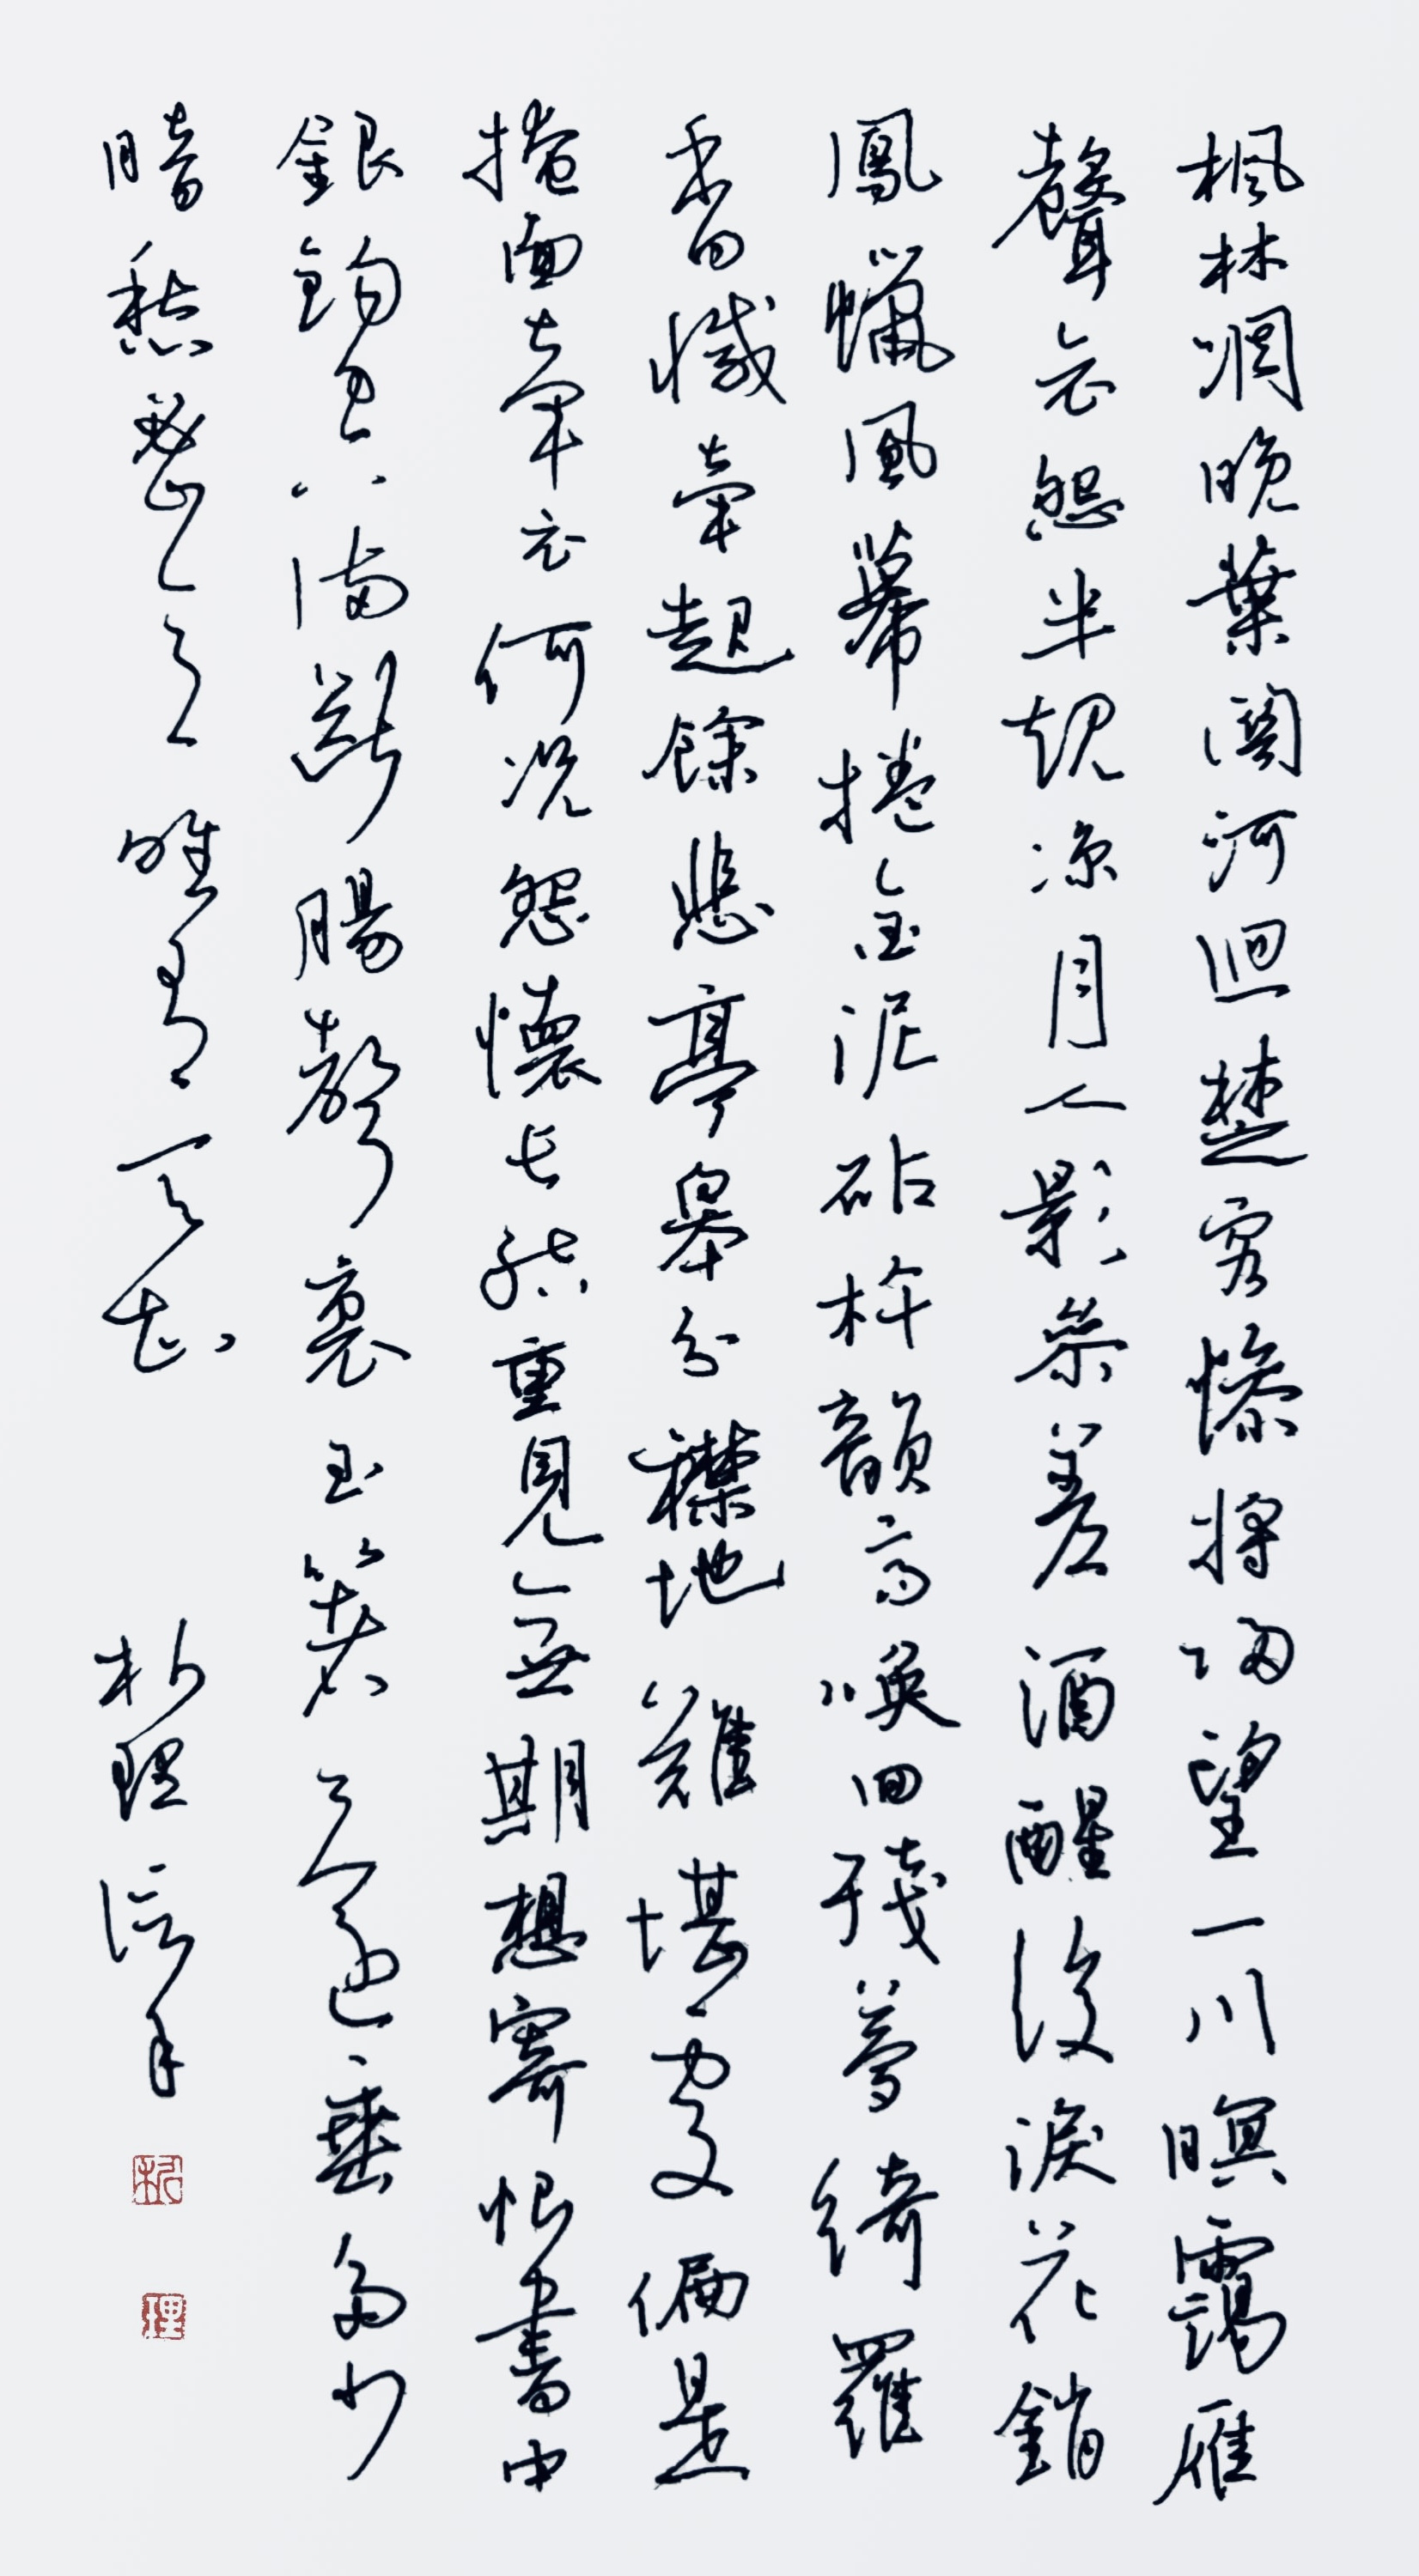 楓林凋晚葉關河迥楚客慘將歸望一川暝靄雁
聲哀怨半規凉月人影參差酒醒後淚花銷
鳳蠟風幕捲金泥砧杵韻高喚回殘夢綺羅
香減牽起餘悲亭皋分襟地難堪處偏是
掩面牽衣何况怨懷長結重見無期想寄恨書中
銀鉤空滿斷腸聲裏玉箸還垂多少
暗愁密意唯有天知 析理信手
析
理